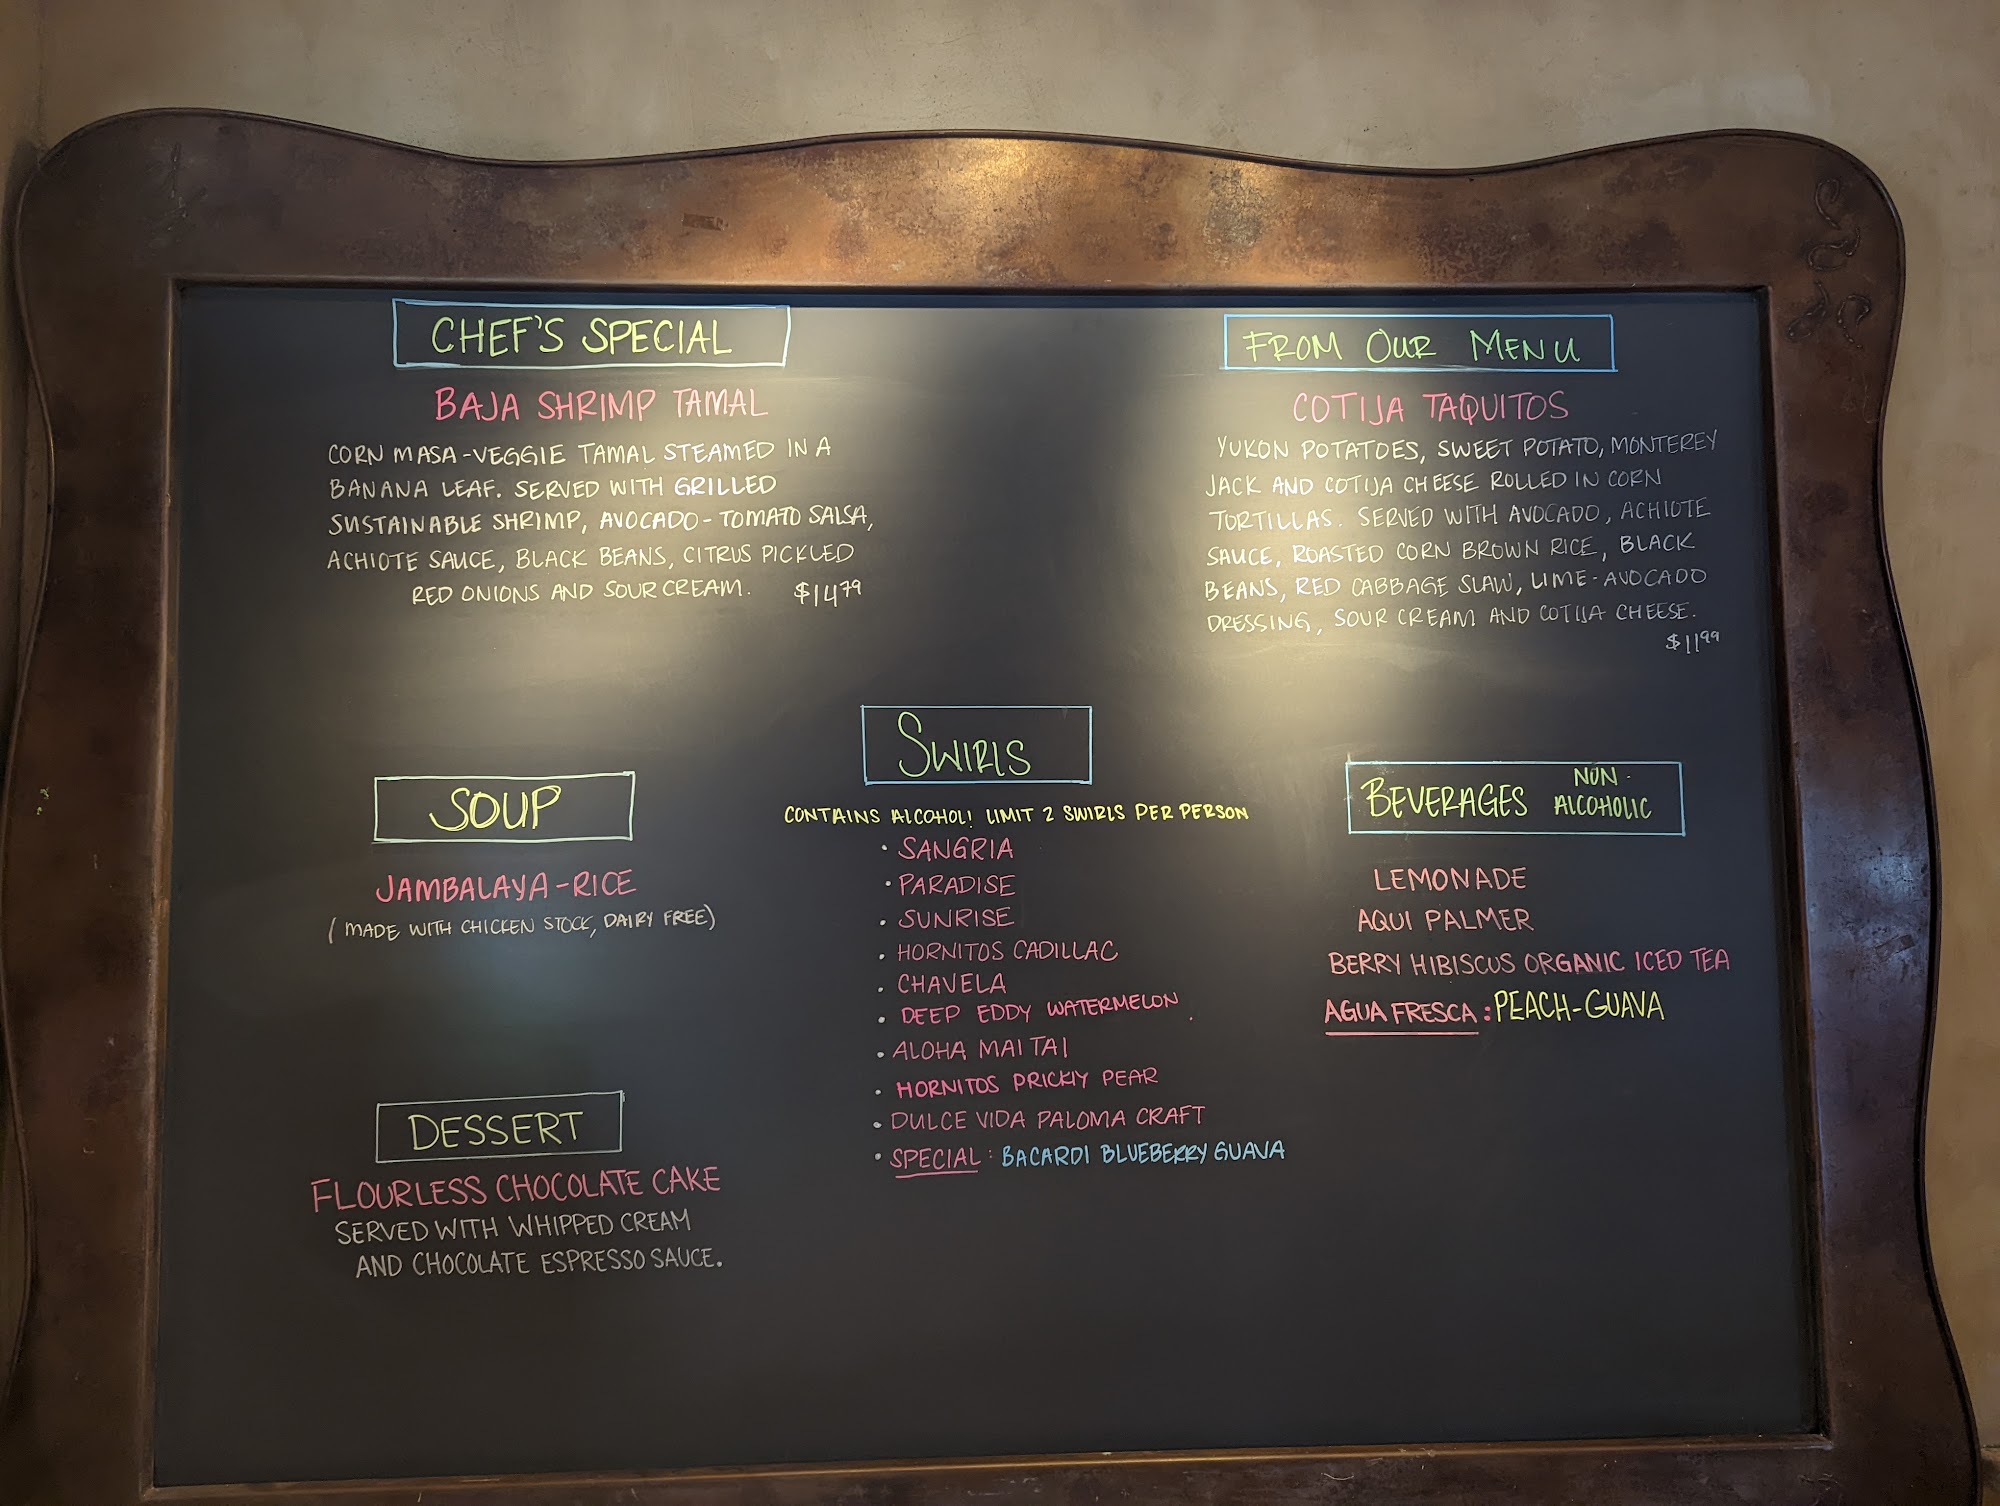 CHEF'S SPECIAL
BAJA SHRIMP TAMAL
CORN MASA-VEGGIE TAMAL STEAMED IN A
BANANA LEAF. SERVED WITH GRILLED
SUSTAINABLE SHRIMP, AVOCADO-TOMATO SALSA,
ACHIOTE SAUCE, BLACK BEANS, CITRUS PICKLED
RED ONIONS AND SOUR CREAM. $14.79
FROM OUR MENU
COTIJA TAQUITOS
YUKON POTATOES, SWEET POTATO, MONTEREY
JACK AND COTIJA CHEESE ROLLED IN CORN
TORTILLAS. SERVED WITH AVOCADO, ACHIOTE
SAUCE, ROASTED CORN BROWN RICE, BLACK
BEANS, RED CABBAGE SLAW, LIME-AVOCADO
DRESSING, SOUR CREAM AND COTIJA CHEESE.
$11.99
SOUP
JAMBALAYA-RICE
(MADE WITH CHICKEN STOCK, DAIRY FREE)
DESSERT
FLOURLESS CHOCOLATE CAKE
SERVED WITH WHIPPED CREAM
AND CHOCOLATE ESPRESSO SAUCE.
SWIRLS
CONTAINS ALCOHOL! LIMIT 2 SWIRLS PER PERSON
• SANGRIA
• PARADISE
• SUNRISE
• HORNITOS CADILLAC
• CHAVELA
• DEEP EDDY WATERMELON
• ALOHA MAI TAI
• HORNITOS PRICKLY PEAR
• DULCE VIDA PALOMA CRAFT
• SPECIAL: BACARDI BLUEBERRY GUAVA
BEVERAGES NON-ALCOHOLIC
LEMONADE
AQUI PALMER
BERRY HIBISCUS ORGANIC ICED TEA
AGUA FRESCA: PEACH-GUAVA